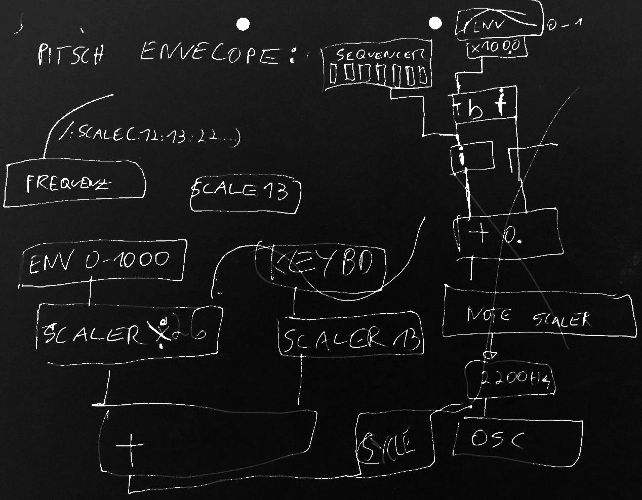 PITSCH ENVELOPE:
SEQUENCER
ENV 0-1
x1000
t b f
/:SCALE(:12:13:22...)
FREQUENZ
SCALE 13
i
+ 0.
ENV 0-1000
KEYBD
SCALER
SCALER 13
NOTE SCALER
2200Hz
+
OSC